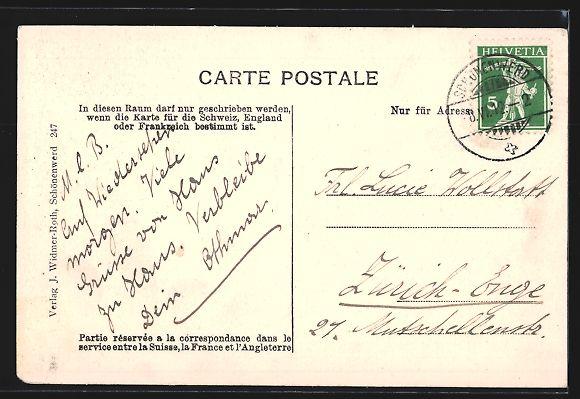 HELVETIA
5
CARTE POSTALE
In diesen Raum darf nur geschrieben werden,
wenn die Karte für die Schweiz, England
oder Frankreich bestimmt ist.
Nur für Adresse
M. l. B.
Auf Wiedersehen
morgen. Viele
Grüsse von Haus
zu Haus. Verbleibe
Dein Othmar.
Partie réservée a la correspondance dans le
service entre la Suisse, la France et l'Angleterre
Verlag J. Widmer-Roth, Schönenwerd 247
Frl. Lucie Vollstatt
Zürich-Enge
27. Mutschellenstr.